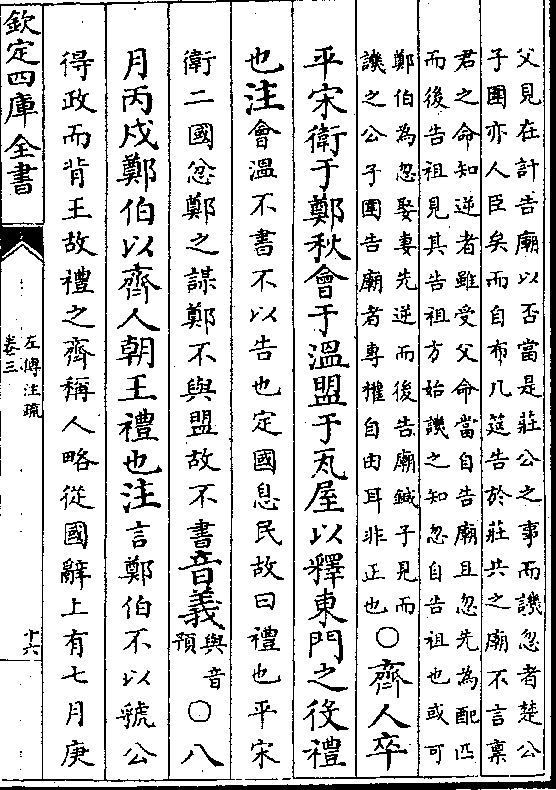 父見在計告廟以否當是莊公之事而譏忽者楚公
子圍亦人臣矣而自布几筵告於莊共之廟不言稟
君之命知逆者雖受父命當自告廟且忽先為配匹
而後告祖見其告祖方始譏之知忽自告祖也或可
鄭伯為忽娶妻先逆而後告廟鍼子見而
譏之公子圍告廟者専權自由耳非正也○齊人卒
平宋衛于鄭秋會于溫盟于瓦屋以釋東門之役禮
也注會溫不書不以告也定國息民故曰禮也平宋
衛二國忿鄭之謀鄭不與盟故不書音義與音預○八
月丙戌鄭伯以齊人朝王禮也注言鄭伯不以虢公
得政而背王故禮之齊稱人略從國辭上有七月庚
欽定四庫全書
左傳注疏
卷三
十六